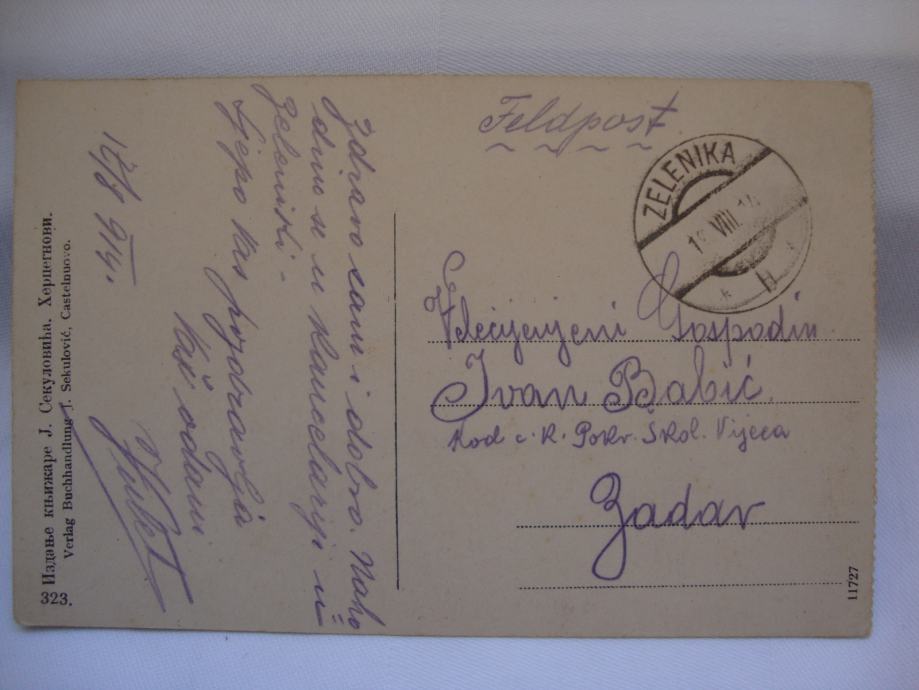 Feldpost
ZELENIKA
VIII 14
Velecijenjeni Gospodin
Ivan Babić
kod c. K. Pokr. Škol. Vijeća
Zadar
Zdravo sam i dobro. Naho
dim se u Kancelariji u
Zelenici -
Lijepo Vas pozdravlja
Vaš odani
914.
Издање књижаре Ј. Секуловића. Херцегнови.
323. Verlag Buchhandlung J. Sekulović, Castelnuovo.
11727